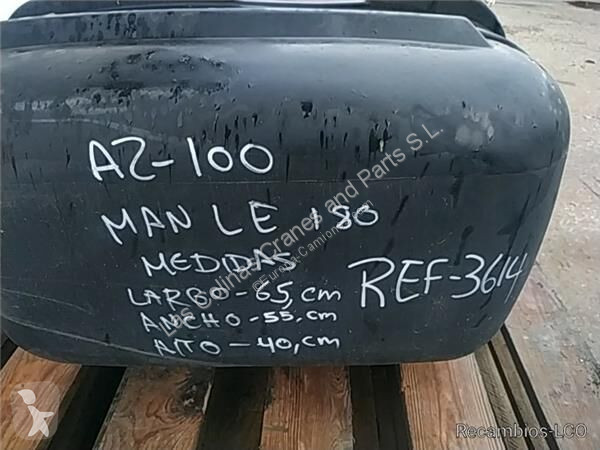 AZ-100
MAN LE 180
MEDIDAS
LARGO-65,cm
ANCHO-55,cm
AlTO-40,cm
REF-3614
Las Salinas Cranes and Parts S.L.
Recambios-LCO